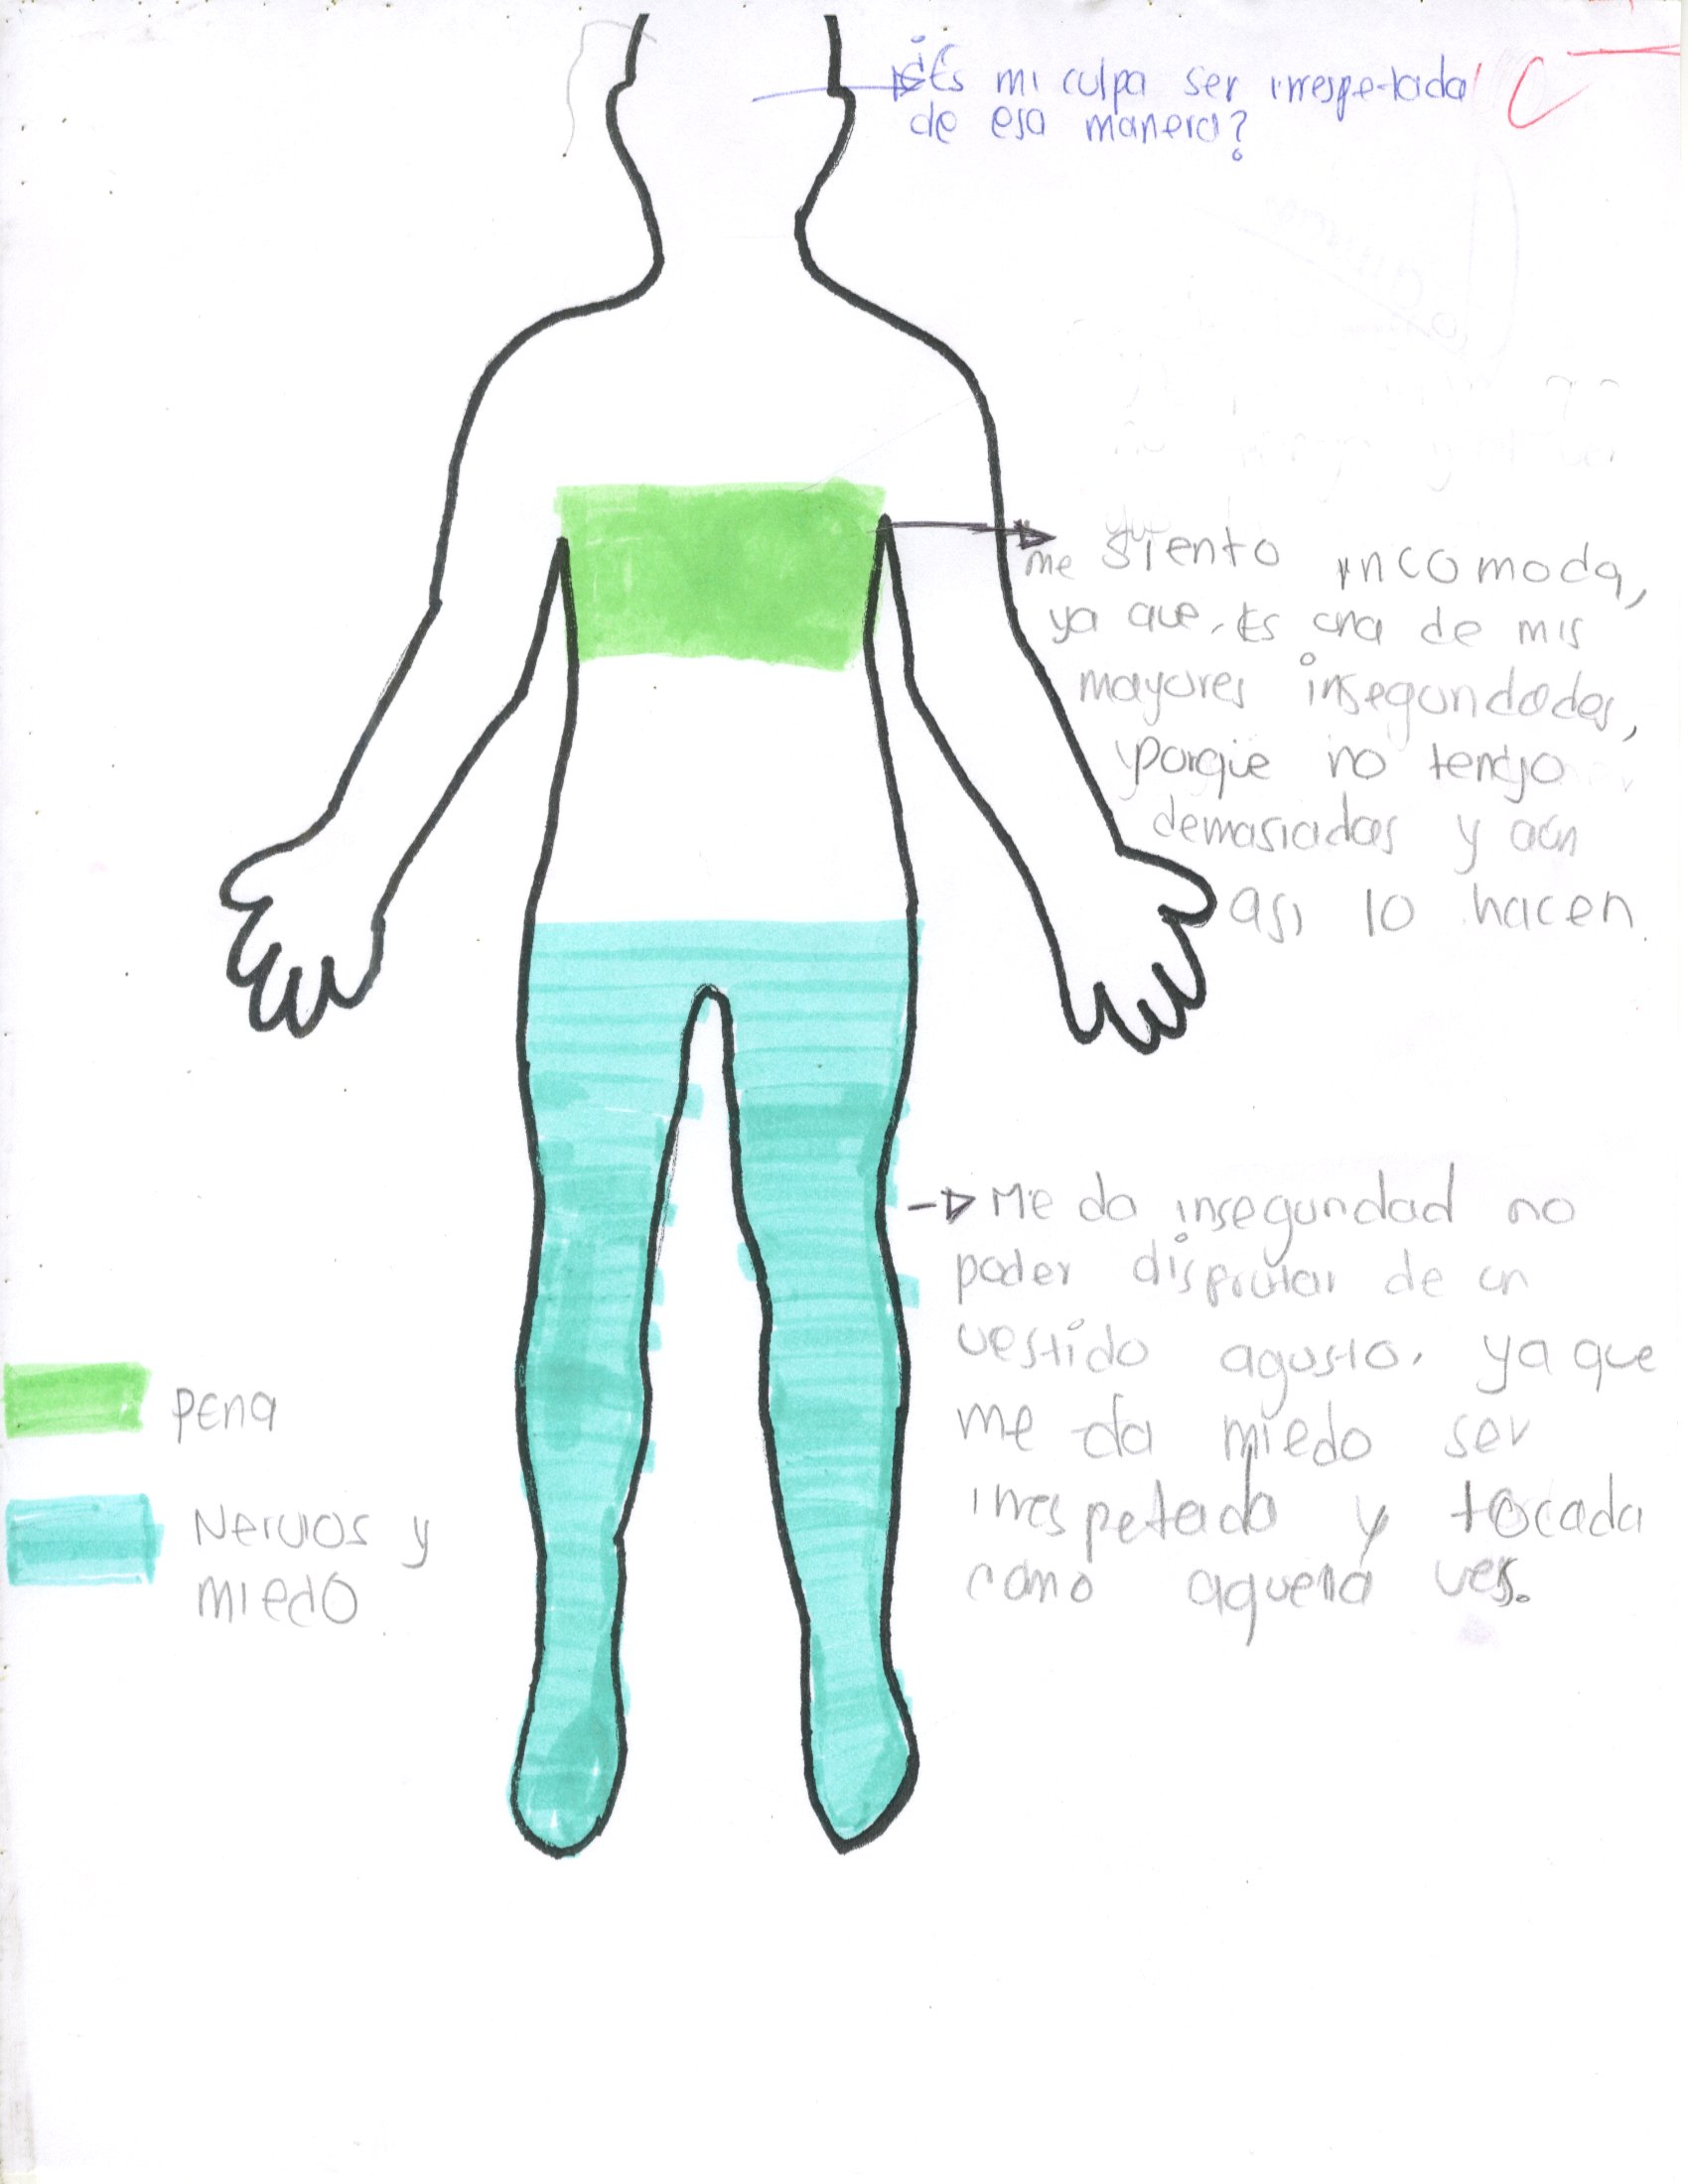 ¿Es mi culpa ser irrespetada
de esa manera?
me siento incomoda,
ya que, Es una de mis
mayores inseguridades,
porque no tengo
demasiadas y aún
así lo hacen.
Me da inseguridad no
poder disfrutar de un
vestido agusto, ya que
me da miedo ser
irrespetada y tocada
como aquella ves.
pena
Nervios y
miedo